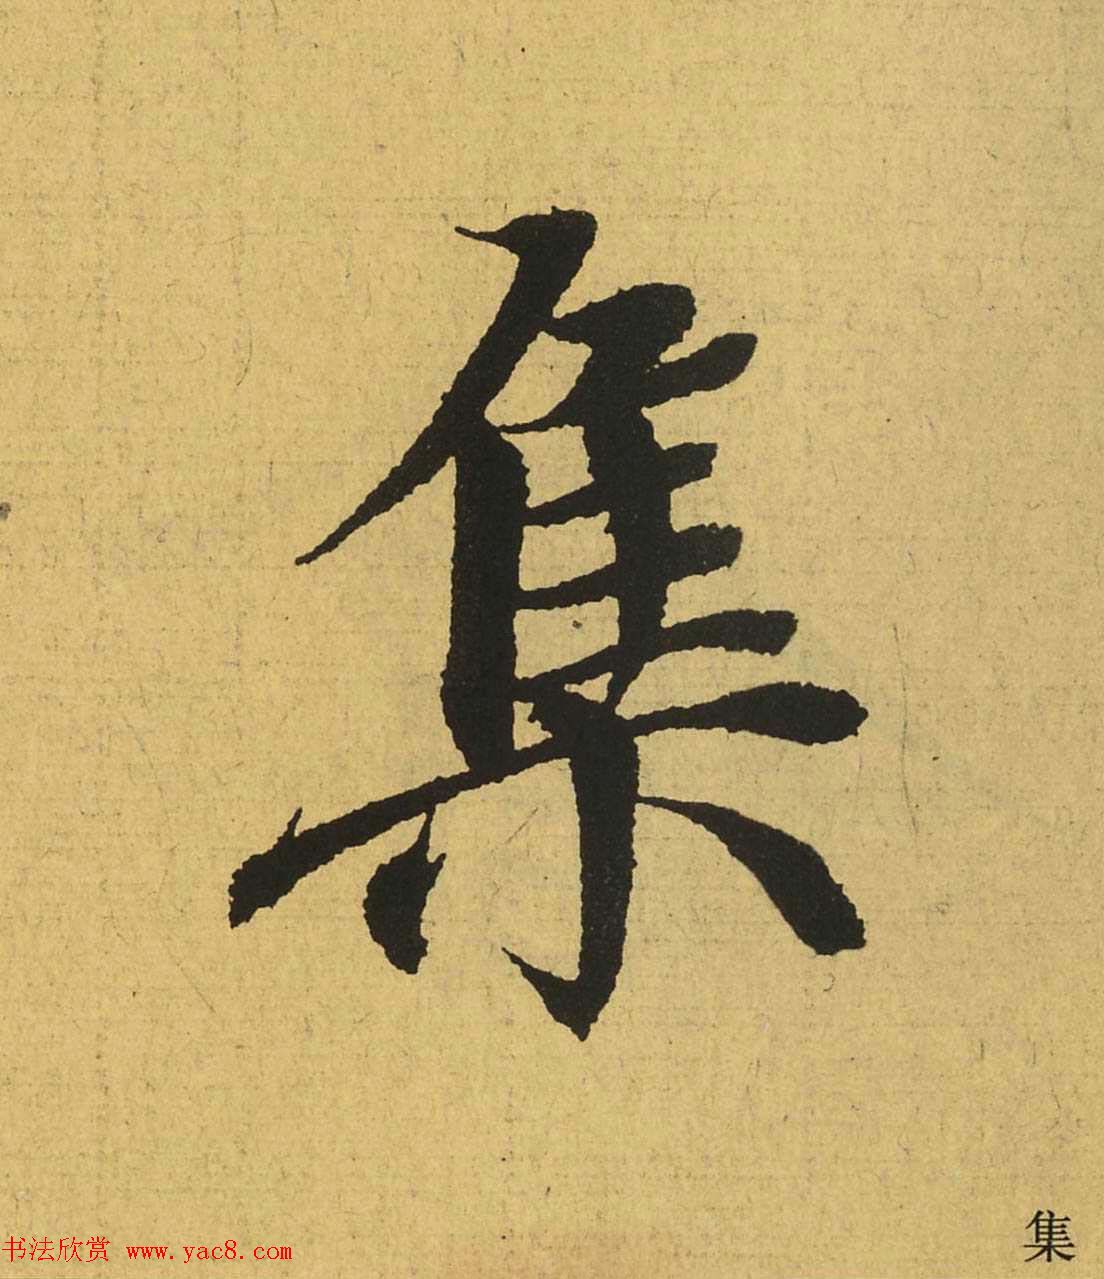 集
集
书法欣赏 www.yac8.com